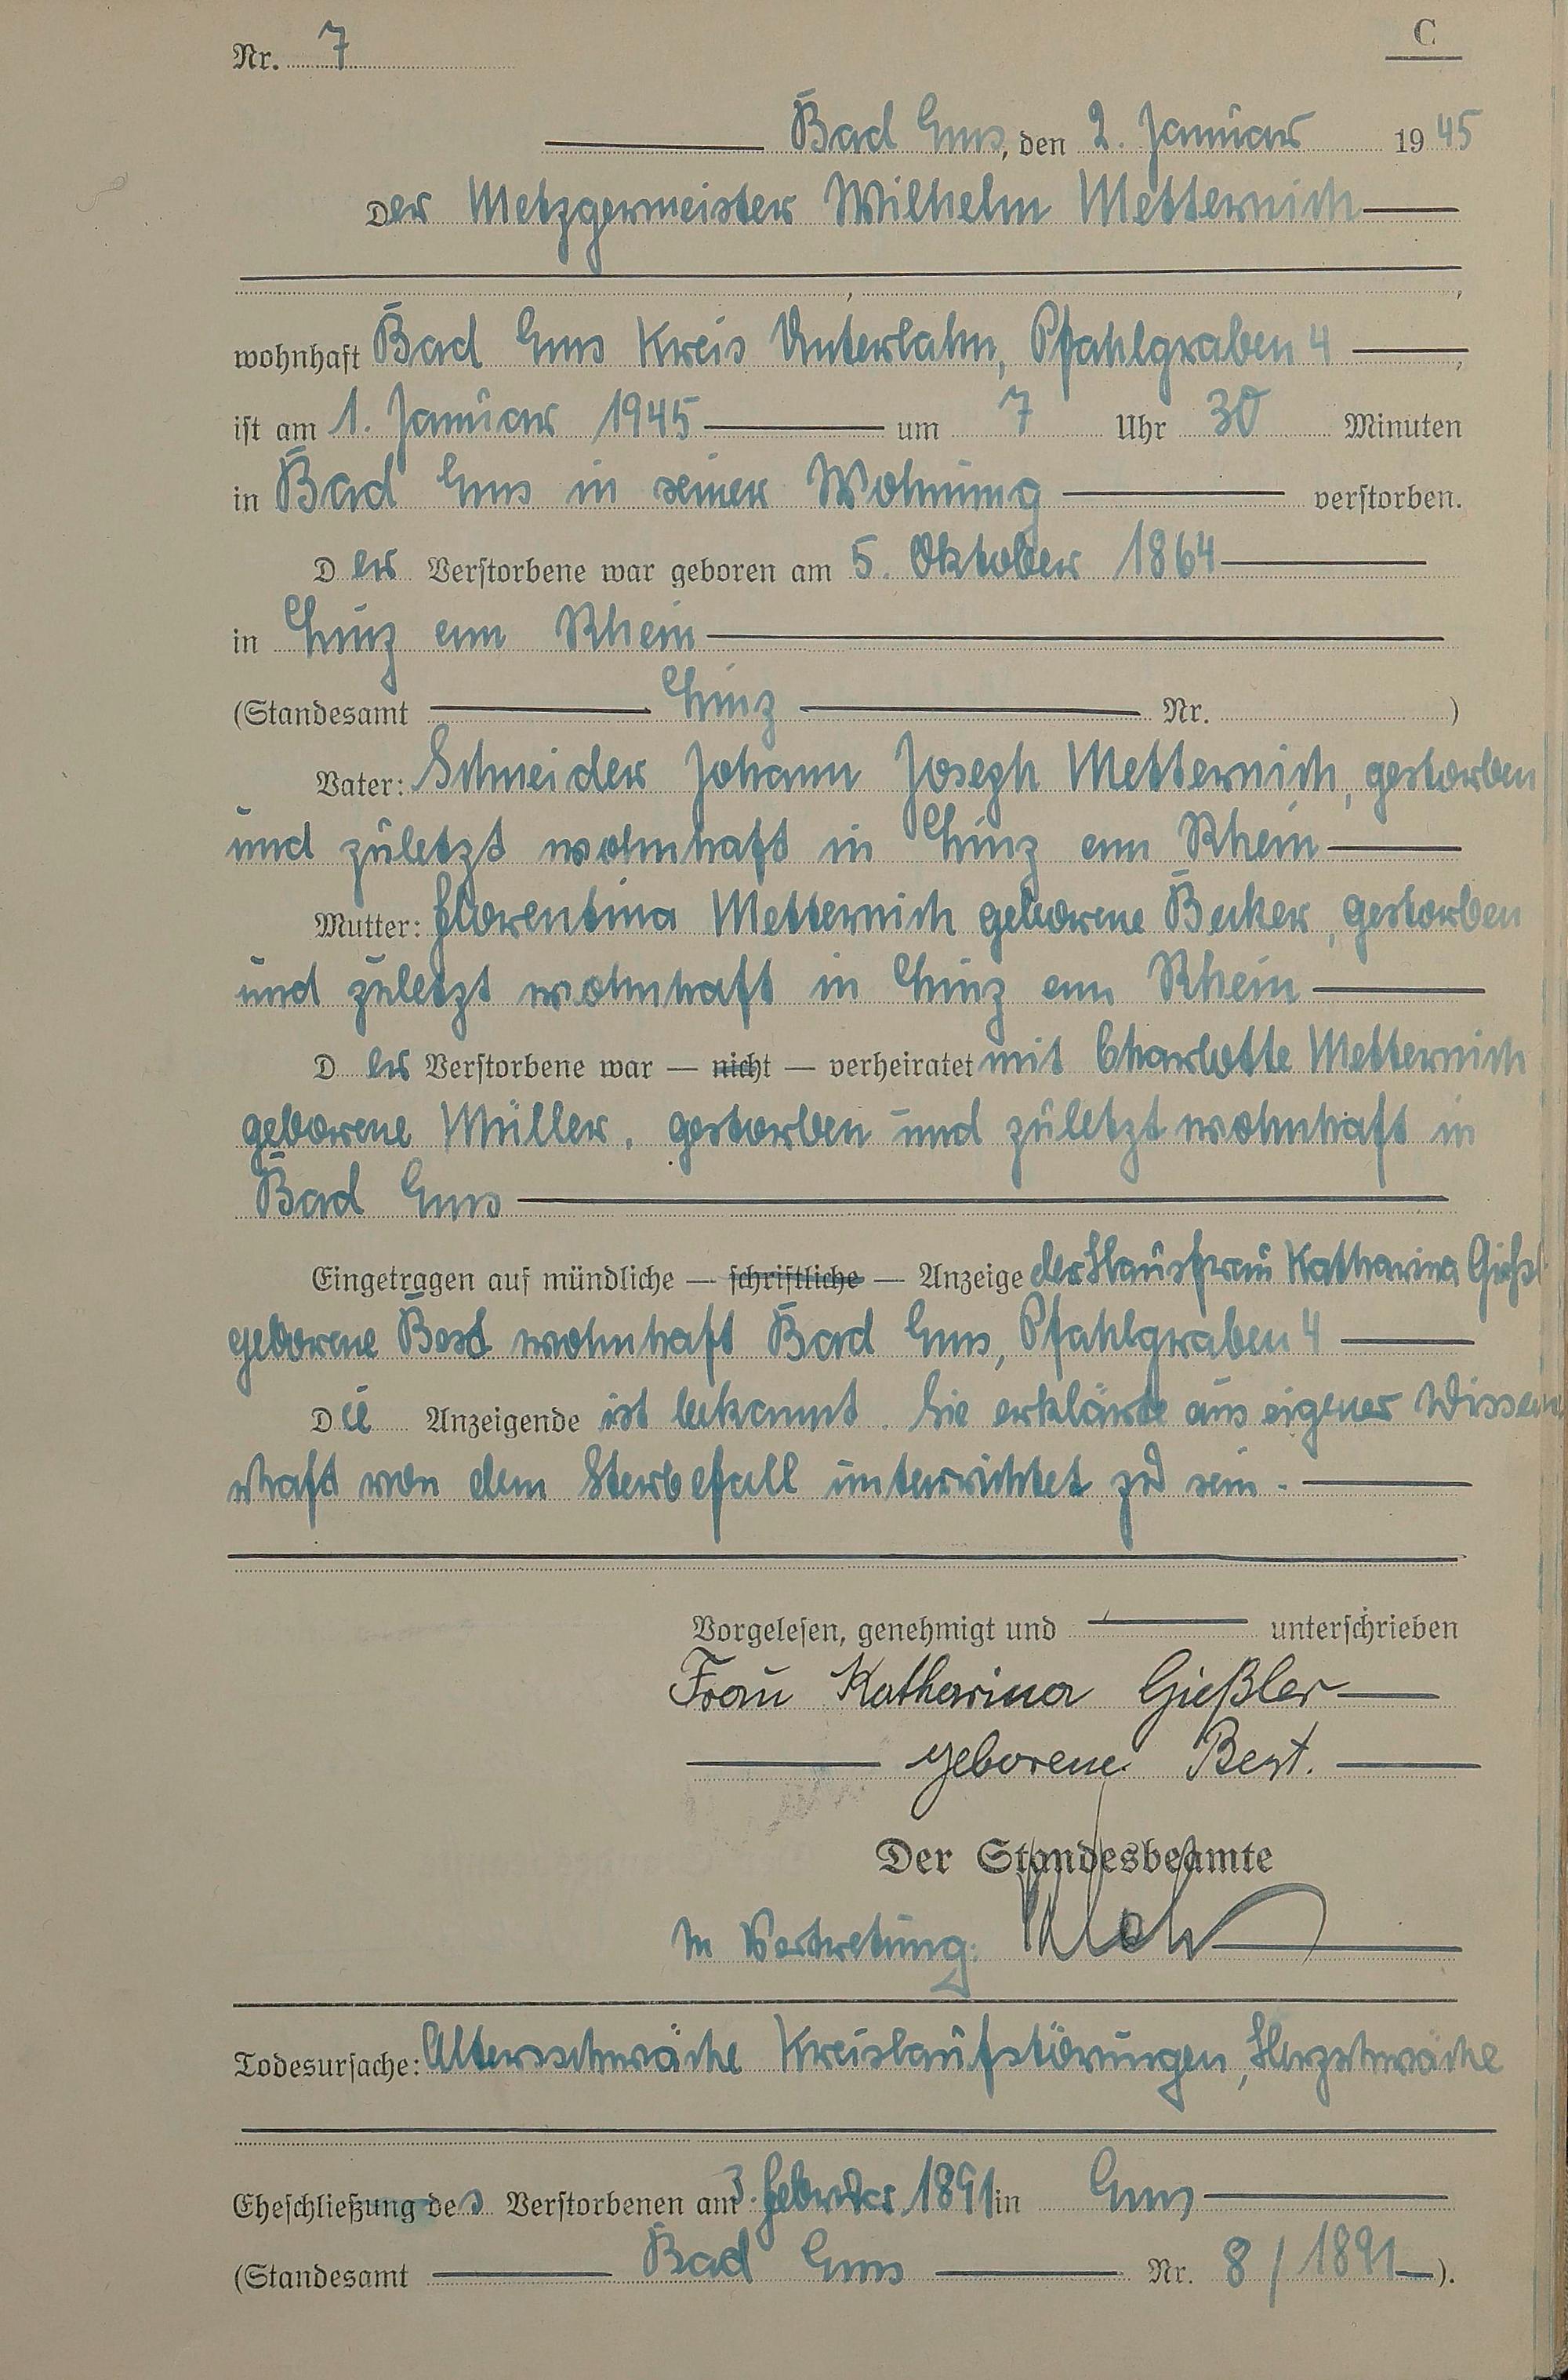 C
Nr. 7
Bad Ems, den 2. Januar 1945
Der Metzgermeister Wilhelm Metternich
wohnhaft Bad Ems Kreis Unterlahn, Pfahlgraben 4,
ist am 1. Januar 1945 um 7 Uhr 30 Minuten
in Bad Ems in seiner Wohnung verstorben.
Der Verstorbene war geboren am 5. Oktober 1864
in Linz am Rhein
(Standesamt Linz Nr. )
Vater: Schneider Johann Joseph Metternich, gestorben
und zuletzt wohnhaft in Linz am Rhein
Mutter: Florentina Metternich geborene Becker, gestorben
und zuletzt wohnhaft in Linz am Rhein
Der Verstorbene war — nicht — verheiratet mit Charlotte Metternich
geborene Müller, gestorben und zuletzt wohnhaft in
Bad Ems
Eingetragen auf mündliche — schriftliche — Anzeige der Hausfrau Katharina Gießl
geborene Best wohnhaft Bad Ems, Pfahlgraben 4
Die Anzeigende ist bekannt. Sie erklärte aus eigener Wissen
schaft von dem Sterbefall unterrichtet zu sein.
Vorgelesen, genehmigt und unterschrieben
Frau Katharina Gießler
geborene Best.
Der Standesbeamte
In Vertretung:
Todesursache: Altersschwäche Kreislaufstörungen, Herzschwäche
Eheschließung des Verstorbenen am 3. Februar 1891 in Ems
(Standesamt Bad Ems Nr. 8/1891).